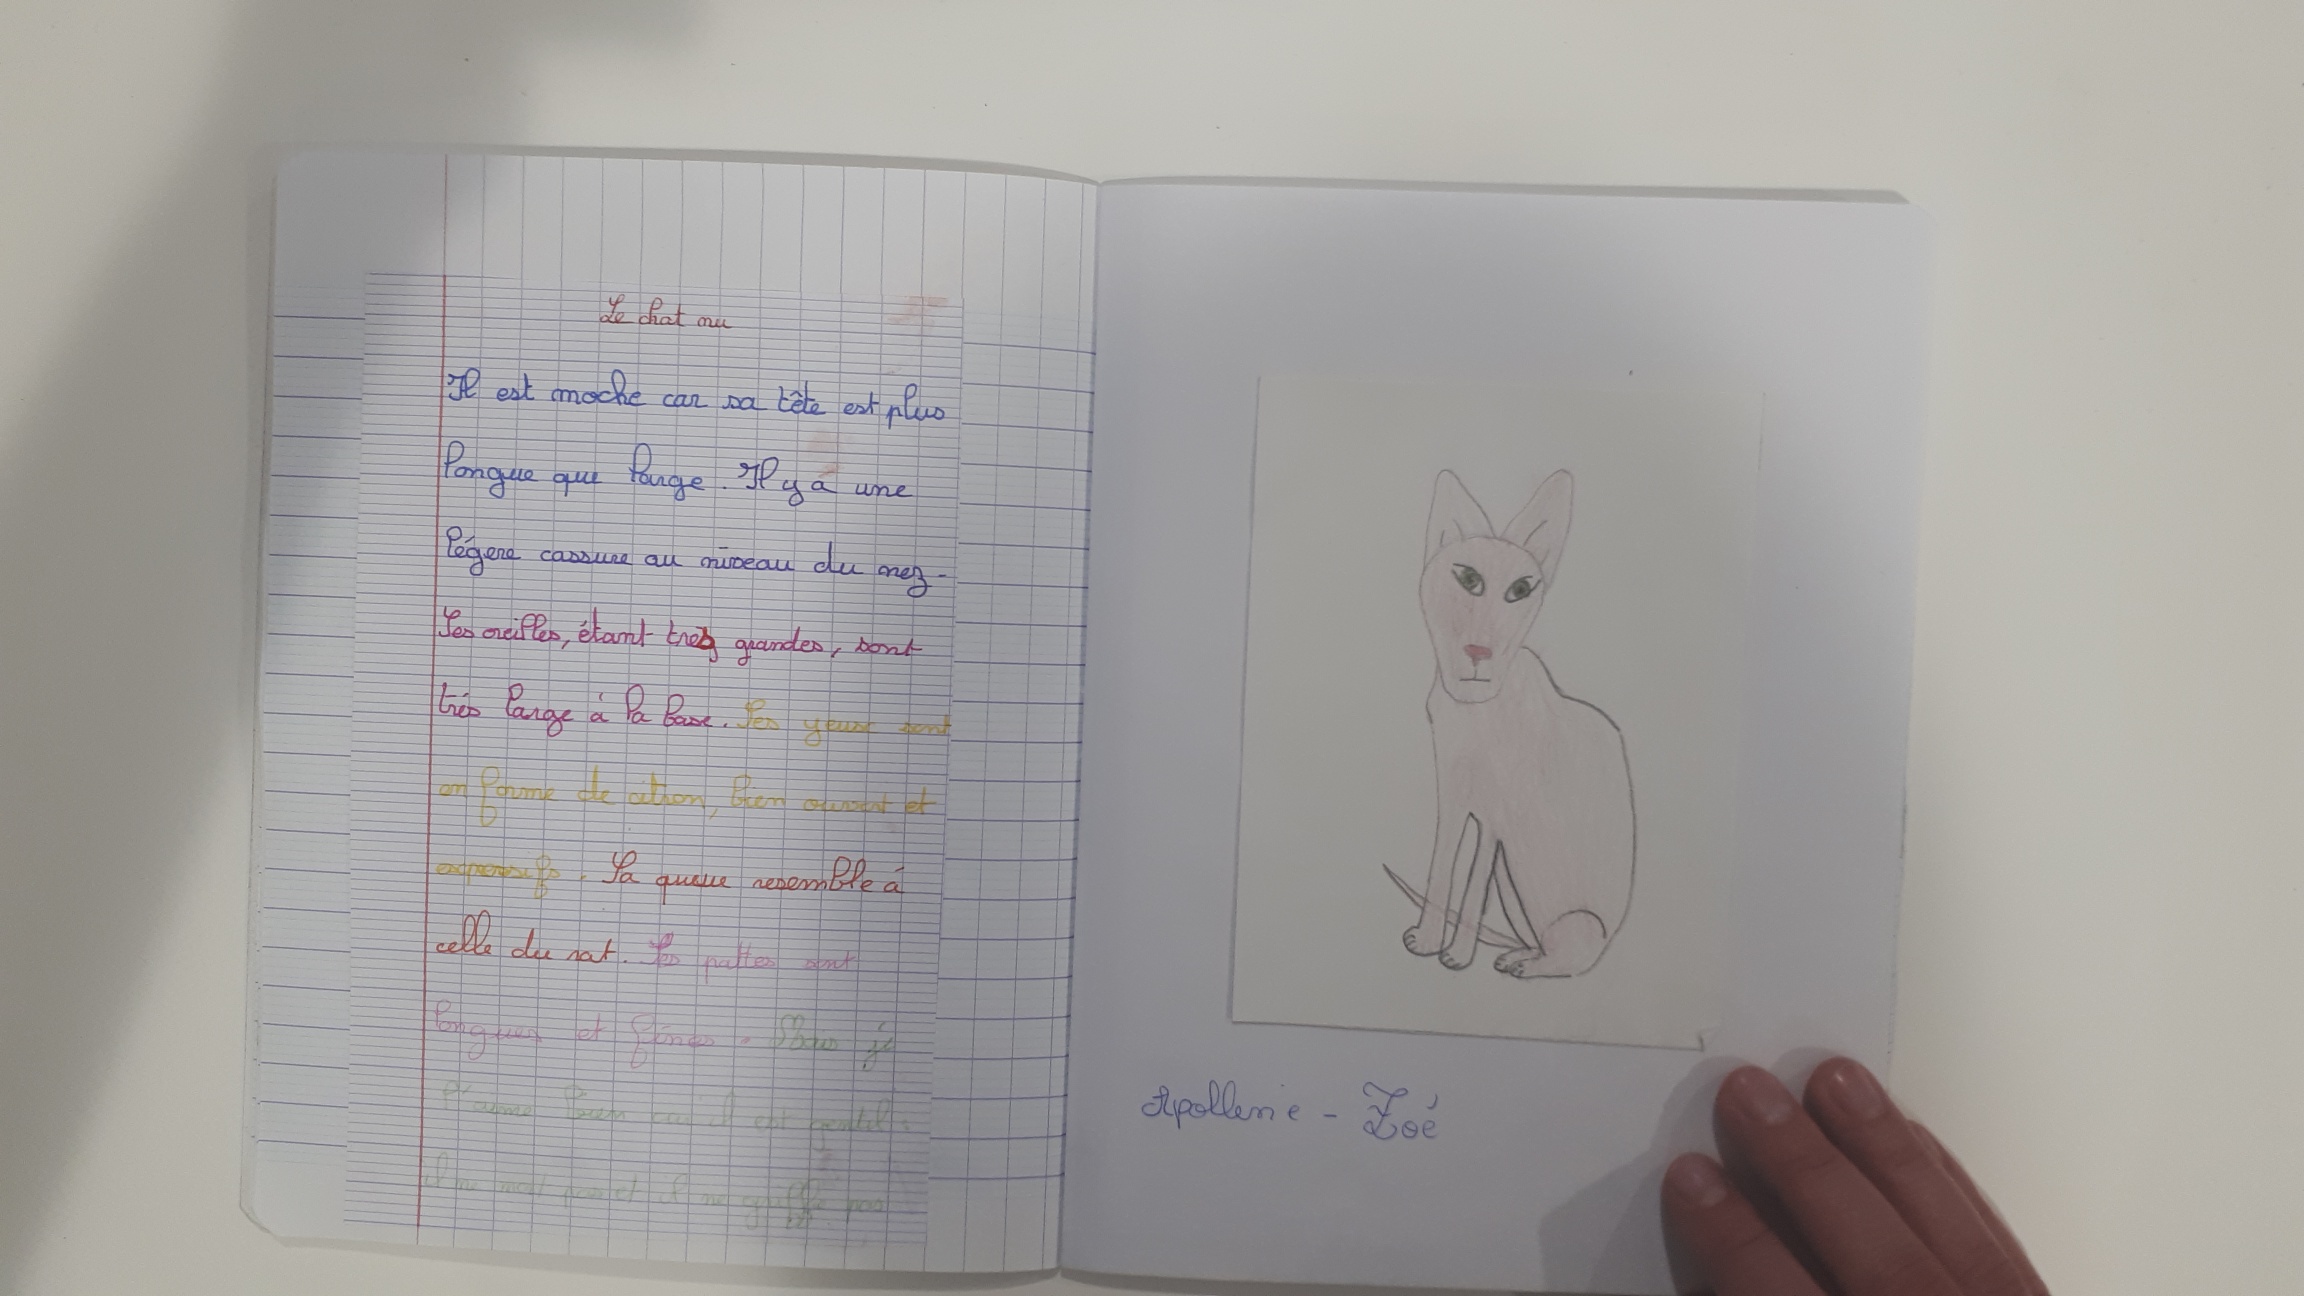 Le chat nu
Il est moche car sa tête est plus
longue que large. Il y á une
légere cassure au niveau du nez.
Ses oreilles, étant tres grandes, sont
très large à la base. Ses yeux sont
en forme de citron, bien ouvert et
expressifs. Sa queue resemble à
celle du rat. Ses pattes sont
longues et fines. Mais je
l'aime bien car il est gentil :
il ne mort pas et il ne griffe pas
Apollenie - Zoé